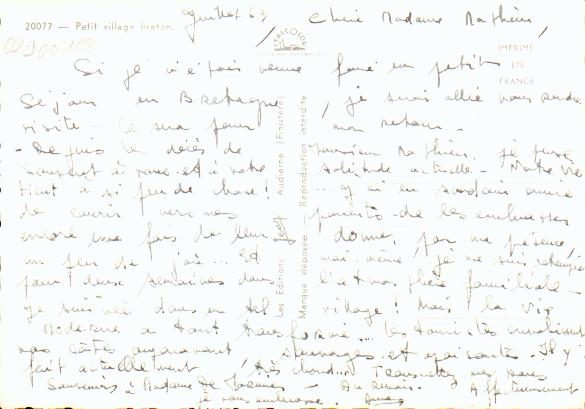 20077 — Petit village breton.
Juillet 63
Chère Madame Mathieu,
IMPRIMÉ
EN
FRANCE
Si je n'étais venue faire un petit
Séjour en Bretagne, je serais allée vous rendre
visite. Ce sera pour mon retour.
- Depuis le décès de Monsieur Mathieu, je pense
souvent à vous et à votre solitude actuelle - Notre vie
tient à si peu de chose! ... j'ai eu soudain envie
de courir vers mes parents de les embrasser
encore une fois de leur donner, par ma présence,
un peu de joie... Et moi-même, je me suis
pour deux semaines dans l'atmosphère familiale -
Je suis née dans un tel village! Mais la vie
moderne a tout transformé... les touristes envahissent
nos côtes auparavant sauvages et Il y
fait actuellement très chaud...
Souvenirs à Madame De - Au revoir. Affectueusement
je vous embrasse.
Les Editions Jack Audierne (Finistère)
Marque déposée — Reproduction interdite